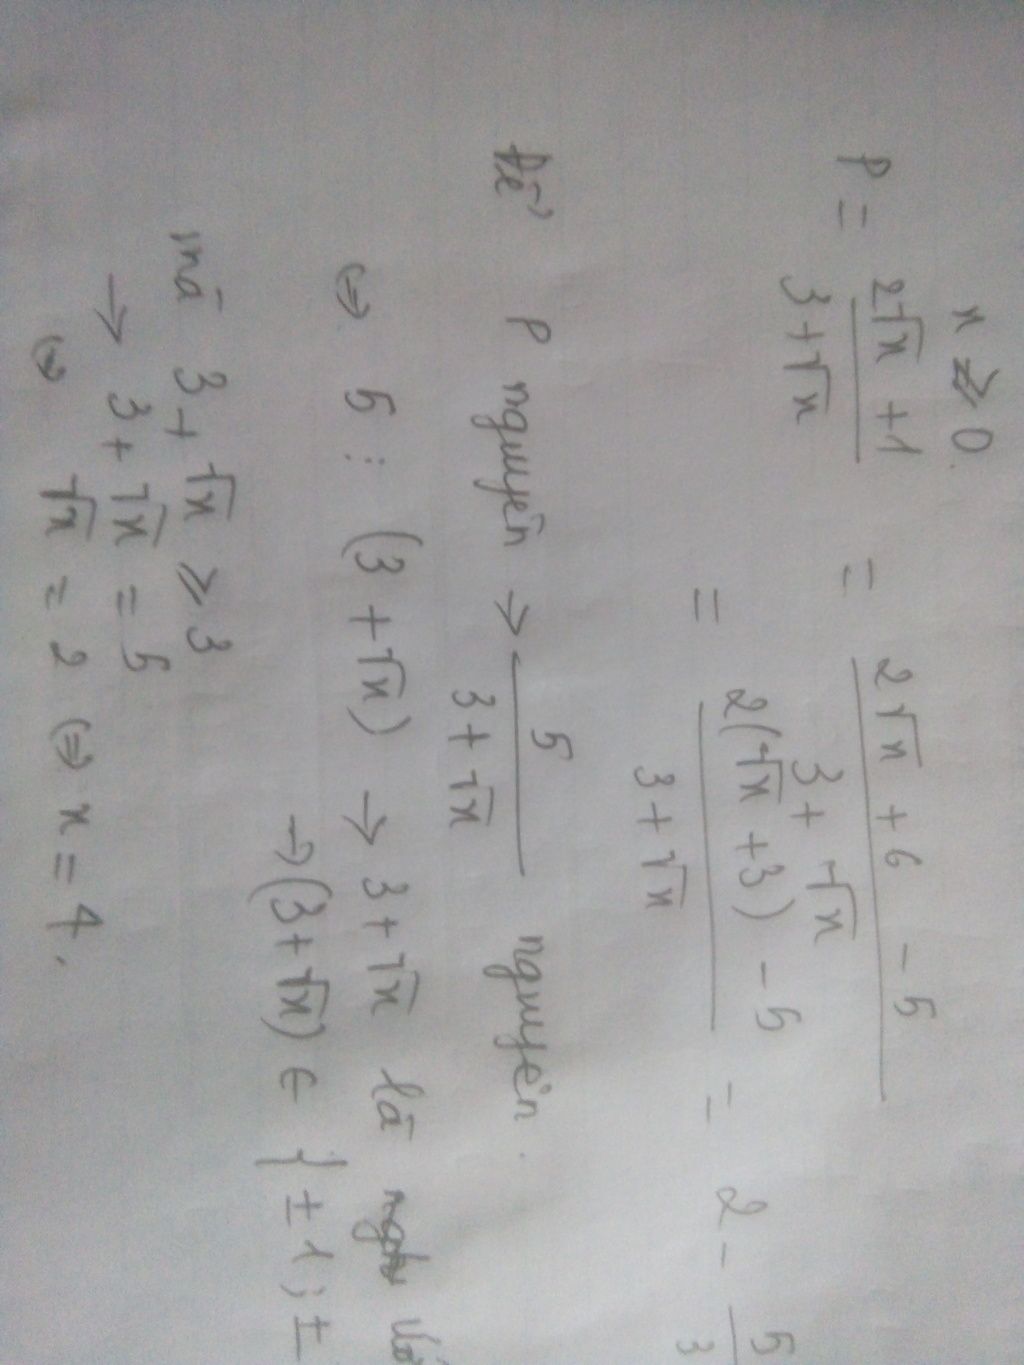 x ≥ 0.
P = (2√x + 1)/(3 + √x) = (2√x + 6 - 5)/(3 + √x)
= (2(√x + 3) - 5)/(3 + √x) = 2 - 5/3
Để P nguyên → 5/(3 + √x) nguyên.
⇔ 5 ⋮ (3 + √x) → 3 + √x là
→ (3 + √x) ∈ { ± 1 ; ±
mà 3 + √x ≥ 3
→ 3 + √x = 5
⇔ √x = 2 ⇔ x = 4.